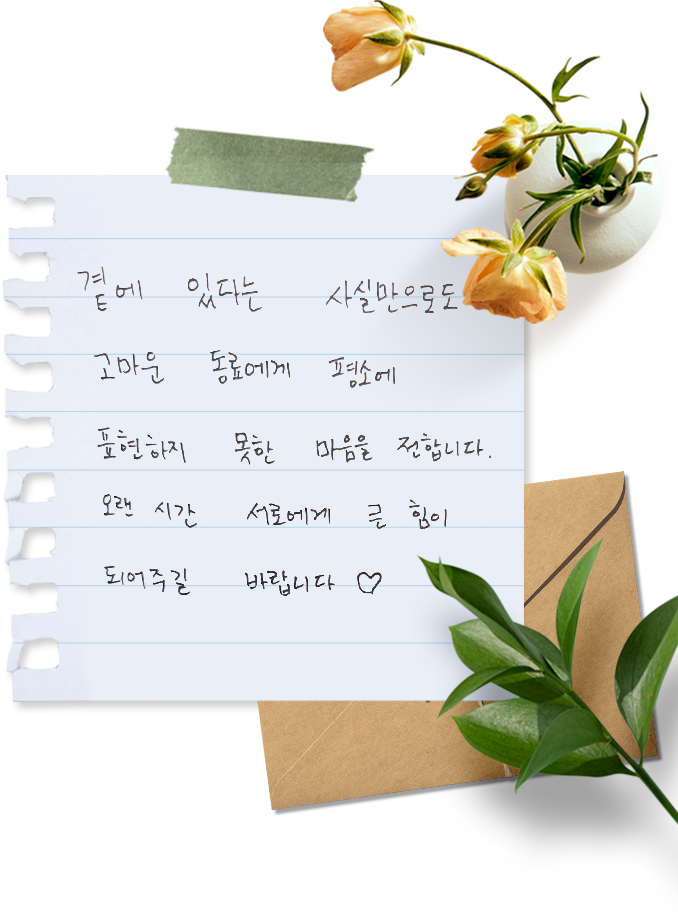 곁에 있다는 사실만으로도
고마운 동료에게 평소에
표현하지 못한 마음을 전합니다.
오랜 시간 서로에게 큰 힘이
되어주길 바랍니다 ♡